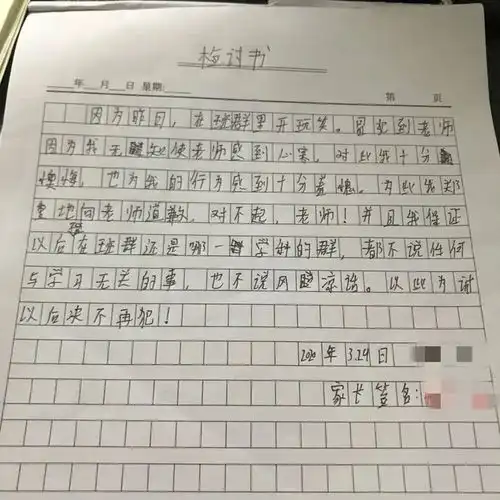 检讨书
年 月 日 星期 第 页
因为昨日,在班群里开玩笑。冒犯到老师
因为我无知使老师感到心寒,对此我十分
懊悔,也为我的行为感到十分羞愧。为此我郑
重地向老师道歉,对不起,老师!并且我保证
以后在班群还是哪一学科的群,都不说任何
与学习无关的事,也不说风凉话。以此为讨
以后决不再犯!
2020年3.24日
家长签名: